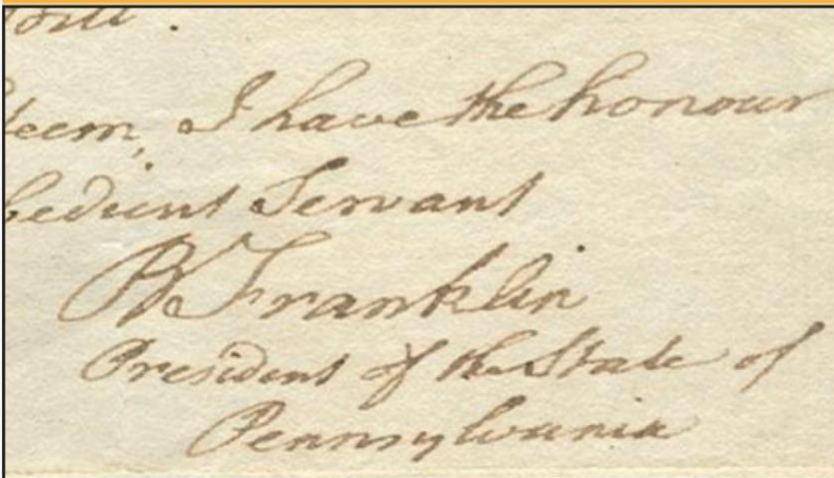 teem, I have the honour
bedient Servant
B Franklin
President of the State of
Pennsylvania